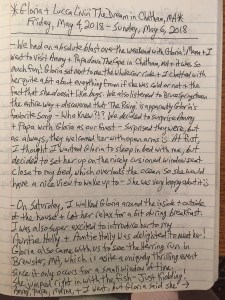 *Gloria + Lucca Livin' The Dream in Chatham, MA*
Friday, May 4, 2018 – Sunday, May 6, 2018
- We had an absolute blast over the weekend with Gloria! Mom + I
went to visit Ammy + Papa down The Cape in Chatham, MA + it was so
much fun! Gloria sat next to me the whole car ride + I chatted with
her quite a bit about everything from if she was cold or not to the
fact that she doesn't like bugs. We also listened to Bruce Springsteen
the entire way + discovered that "The Rising" is apparently Gloria's
favorite song - Who Knew?!?! We decided to surprise Ammy
+ Papa with Gloria as our guest - Surprised they were, but
as always, they welcomed her with open arms. At first,
I thought I wanted Gloria to sleep in bed with me, but
decided to set her up on the nicely cushioned window seat
close to my bed, which overlooks the ocean so she would
have a nice view to wake up to - She was very happy about it.
- On Saturday, I walked Gloria around the inside + outside
of the house + let her relax for a bit during breakfast.
I was also super excited to introduce her to my
Auntie Holly + Auntie Holly was delighted to meet her!
Gloria also came with us to see the Herring Run in
Brewster, MA, which is quite a uniquely thrilling event
since it only occurs for a small window of time.
She jumped right in with the fish - Just Kidding!
Ammy, Papa, Mama, + I went, but Gloria said she